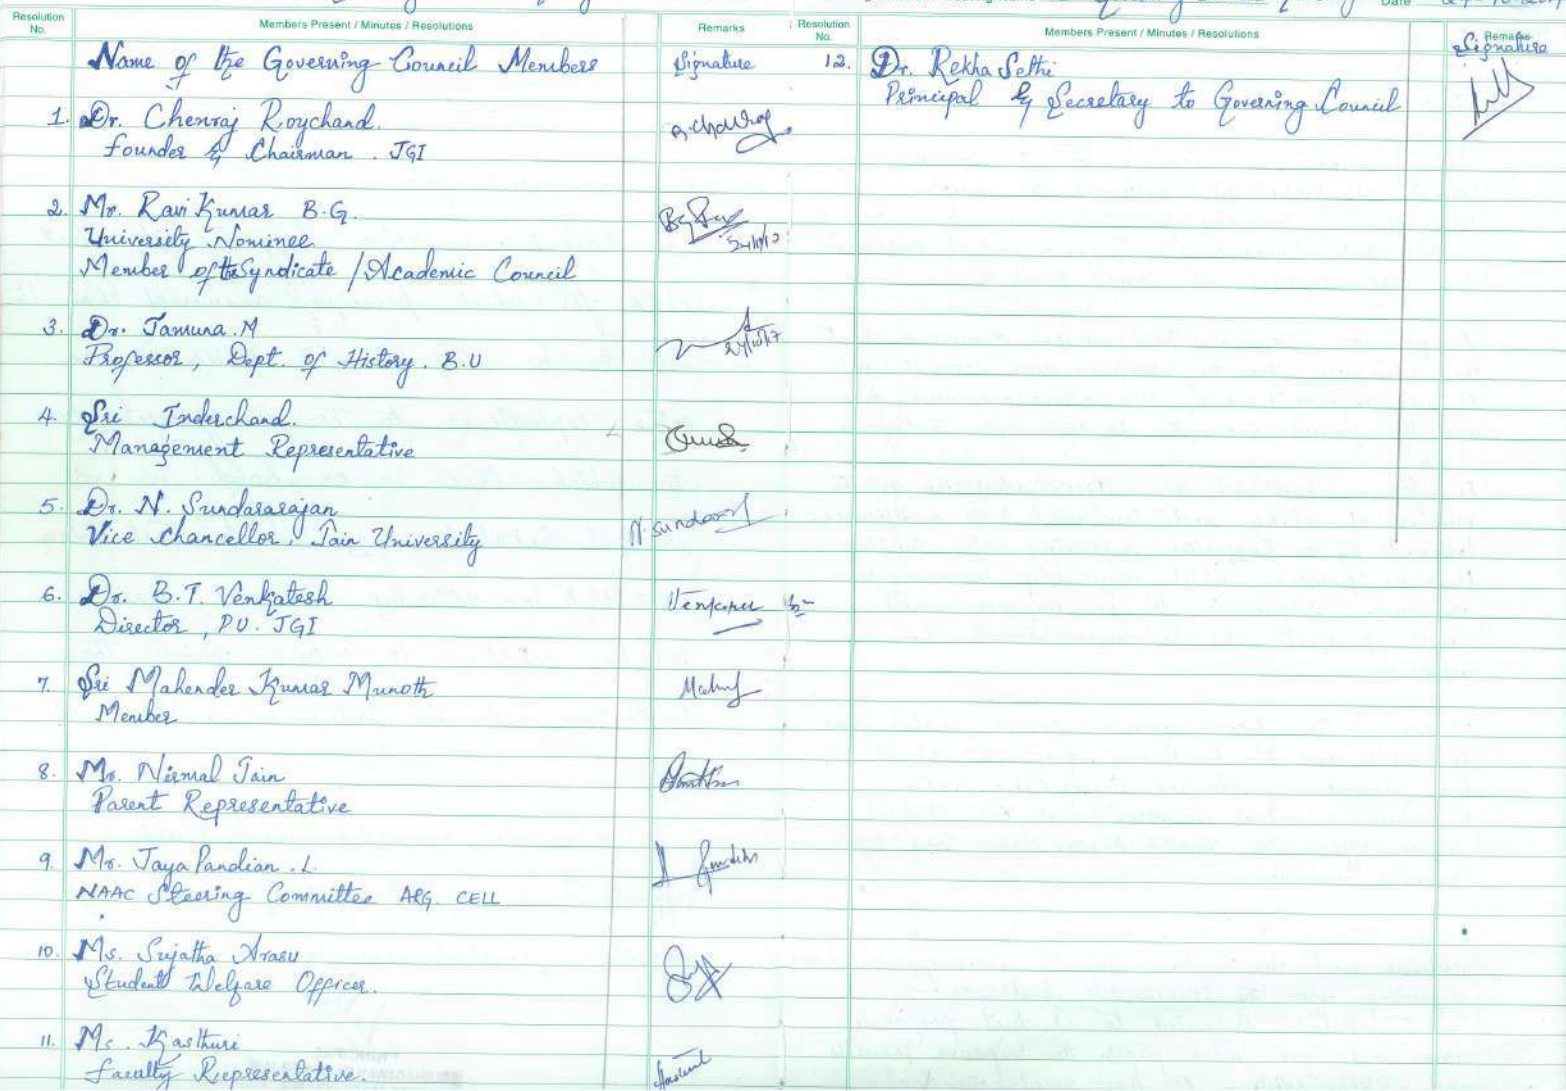 Resolution No.
Members Present / Minutes / Resolutions
Remarks
Name of the Governing Council Members
Signature
1. Dr. Chenraj Roychand.
Founder & Chairman . JGI
2. Mr. Ravi Kumar B.G.
University Nominee
Member of the Syndicate / Academic Council
24/10/17
3. Dr. Jamuna .M
Professor, Dept. of History. B.U
24/10/17
4. Sri Inderchand.
Management Representative
5. Dr. N. Sundararajan
Vice Chancellor, Jain University
6. Dr. B.T. Venkatesh
Director, PU. JGI
7. Sri Mahender Kumar Munoth
Member
8. Mr. Nirmal Jain
Parent Representative
9. Mr. Jaya Pandian .L
NAAC Steering Committee ARG. CELL
10. Ms. Sujatha Arasu
Student Welfare Officer.
11. Ms. Kasthuri
Faculty Representative.
Resolution No.
Members Present / Minutes / Resolutions
Remarks
Signature
12. Dr. Rekha Sethi
Principal & Secretary to Governing Council